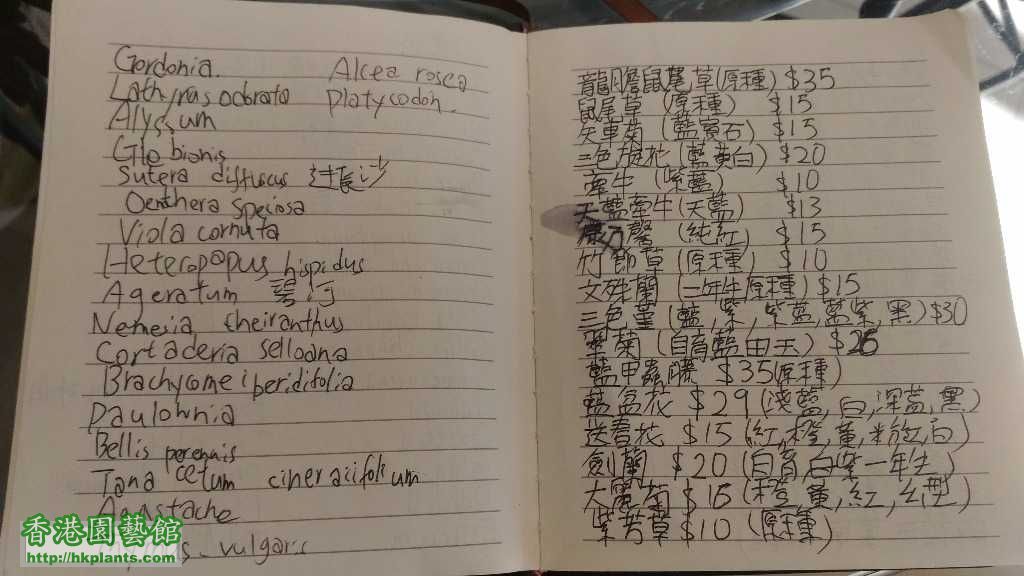 Gordonia. Alcea rosea
Lathyrus odorata Platycodon.
Alyssum
Glebionis
Sutera diffusus 过長沙
Oenthera speciosa
Viola cornuta
Heteropopus hispidus
Ageratum
Nemesia cheiranthus
Cortaderia selloana
Brachycome iberidifolia
Paulownia
Bellis perennis
Tanacetum cineraciifolium
Agastache
vulgaris
龍膽鼠尾草(原種) $35
鼠尾草 (原種) $15
矢車菊 (藍寶石) $15
三色旋花 (藍黃白) $20
牽牛 (紫藍) $10
天藍牽牛 (天藍) $13
(純紅) $15
竹節草 (原種) $10
文殊蘭 (二年生原種) $15
三色堇 (藍,紫,紫藍,藍紫,黑) $30
翠菊
藍甲蟲 $35(原種)
藍盆花 $29 (淺藍,白,深藍,黑)
送春花 $15 (紅,橙,黃,粉紅,白)
劍蘭 $20
大麗菊 $15
紫芳草 $10 (原種)
香港園藝館
http://hkplants.com/